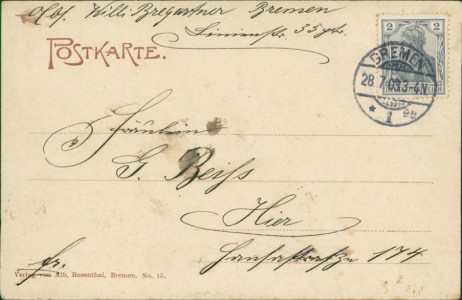 Abs. Willi Bregartner Bremen
Linienstr. 35 ptr.
POSTKARTE.
2 2
BREMEN
28.7.03.3-4N
* 1 gg
Fräulein
G. Beiss
Hier
Hansastraße 174
fr.
Verlag von Alb. Rosenthal, Bremen. No. 15.